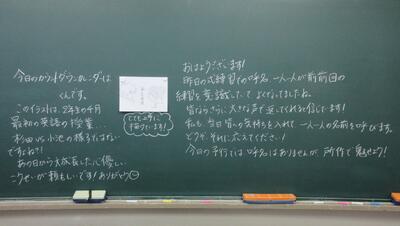 今日のカウントダウンカレンダーは
くんです。
このイラストは、2年生の4月
最初の英語の授業…
杉田 VS 小池の様子ではない
ですよね？！
あの日から大成長した心優しい
こうせいが頼もしいです！ありがとう
とても上手に
描けています！
おはようございます！
昨日の式練習での呼名、一人一人が前前回の
練習を意識していて よくなってましたね。
皆ならさらに大きな声で返してくれると信じてます！
私も、当日皆への気持ちを入れて 一人一人の名前を呼びます。
どうぞ、それに応えてください！
今日の予行では呼名はありませんが、所作で魅せよう！